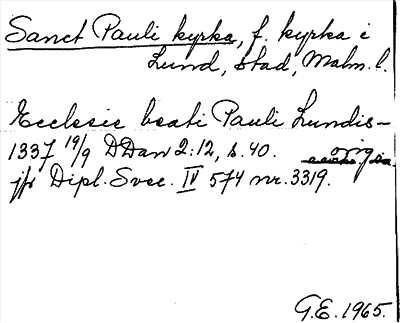 Sanct Pauli kyrka, f. kyrka i
Lund, stad, Malm. l.
Ecclesie beati Pauli Lundis-
1337 19/9 DDan 2:12, s. 40. orig
jfr Dipl. Svec. IV 574 nr. 3319.
G.E. 1965.